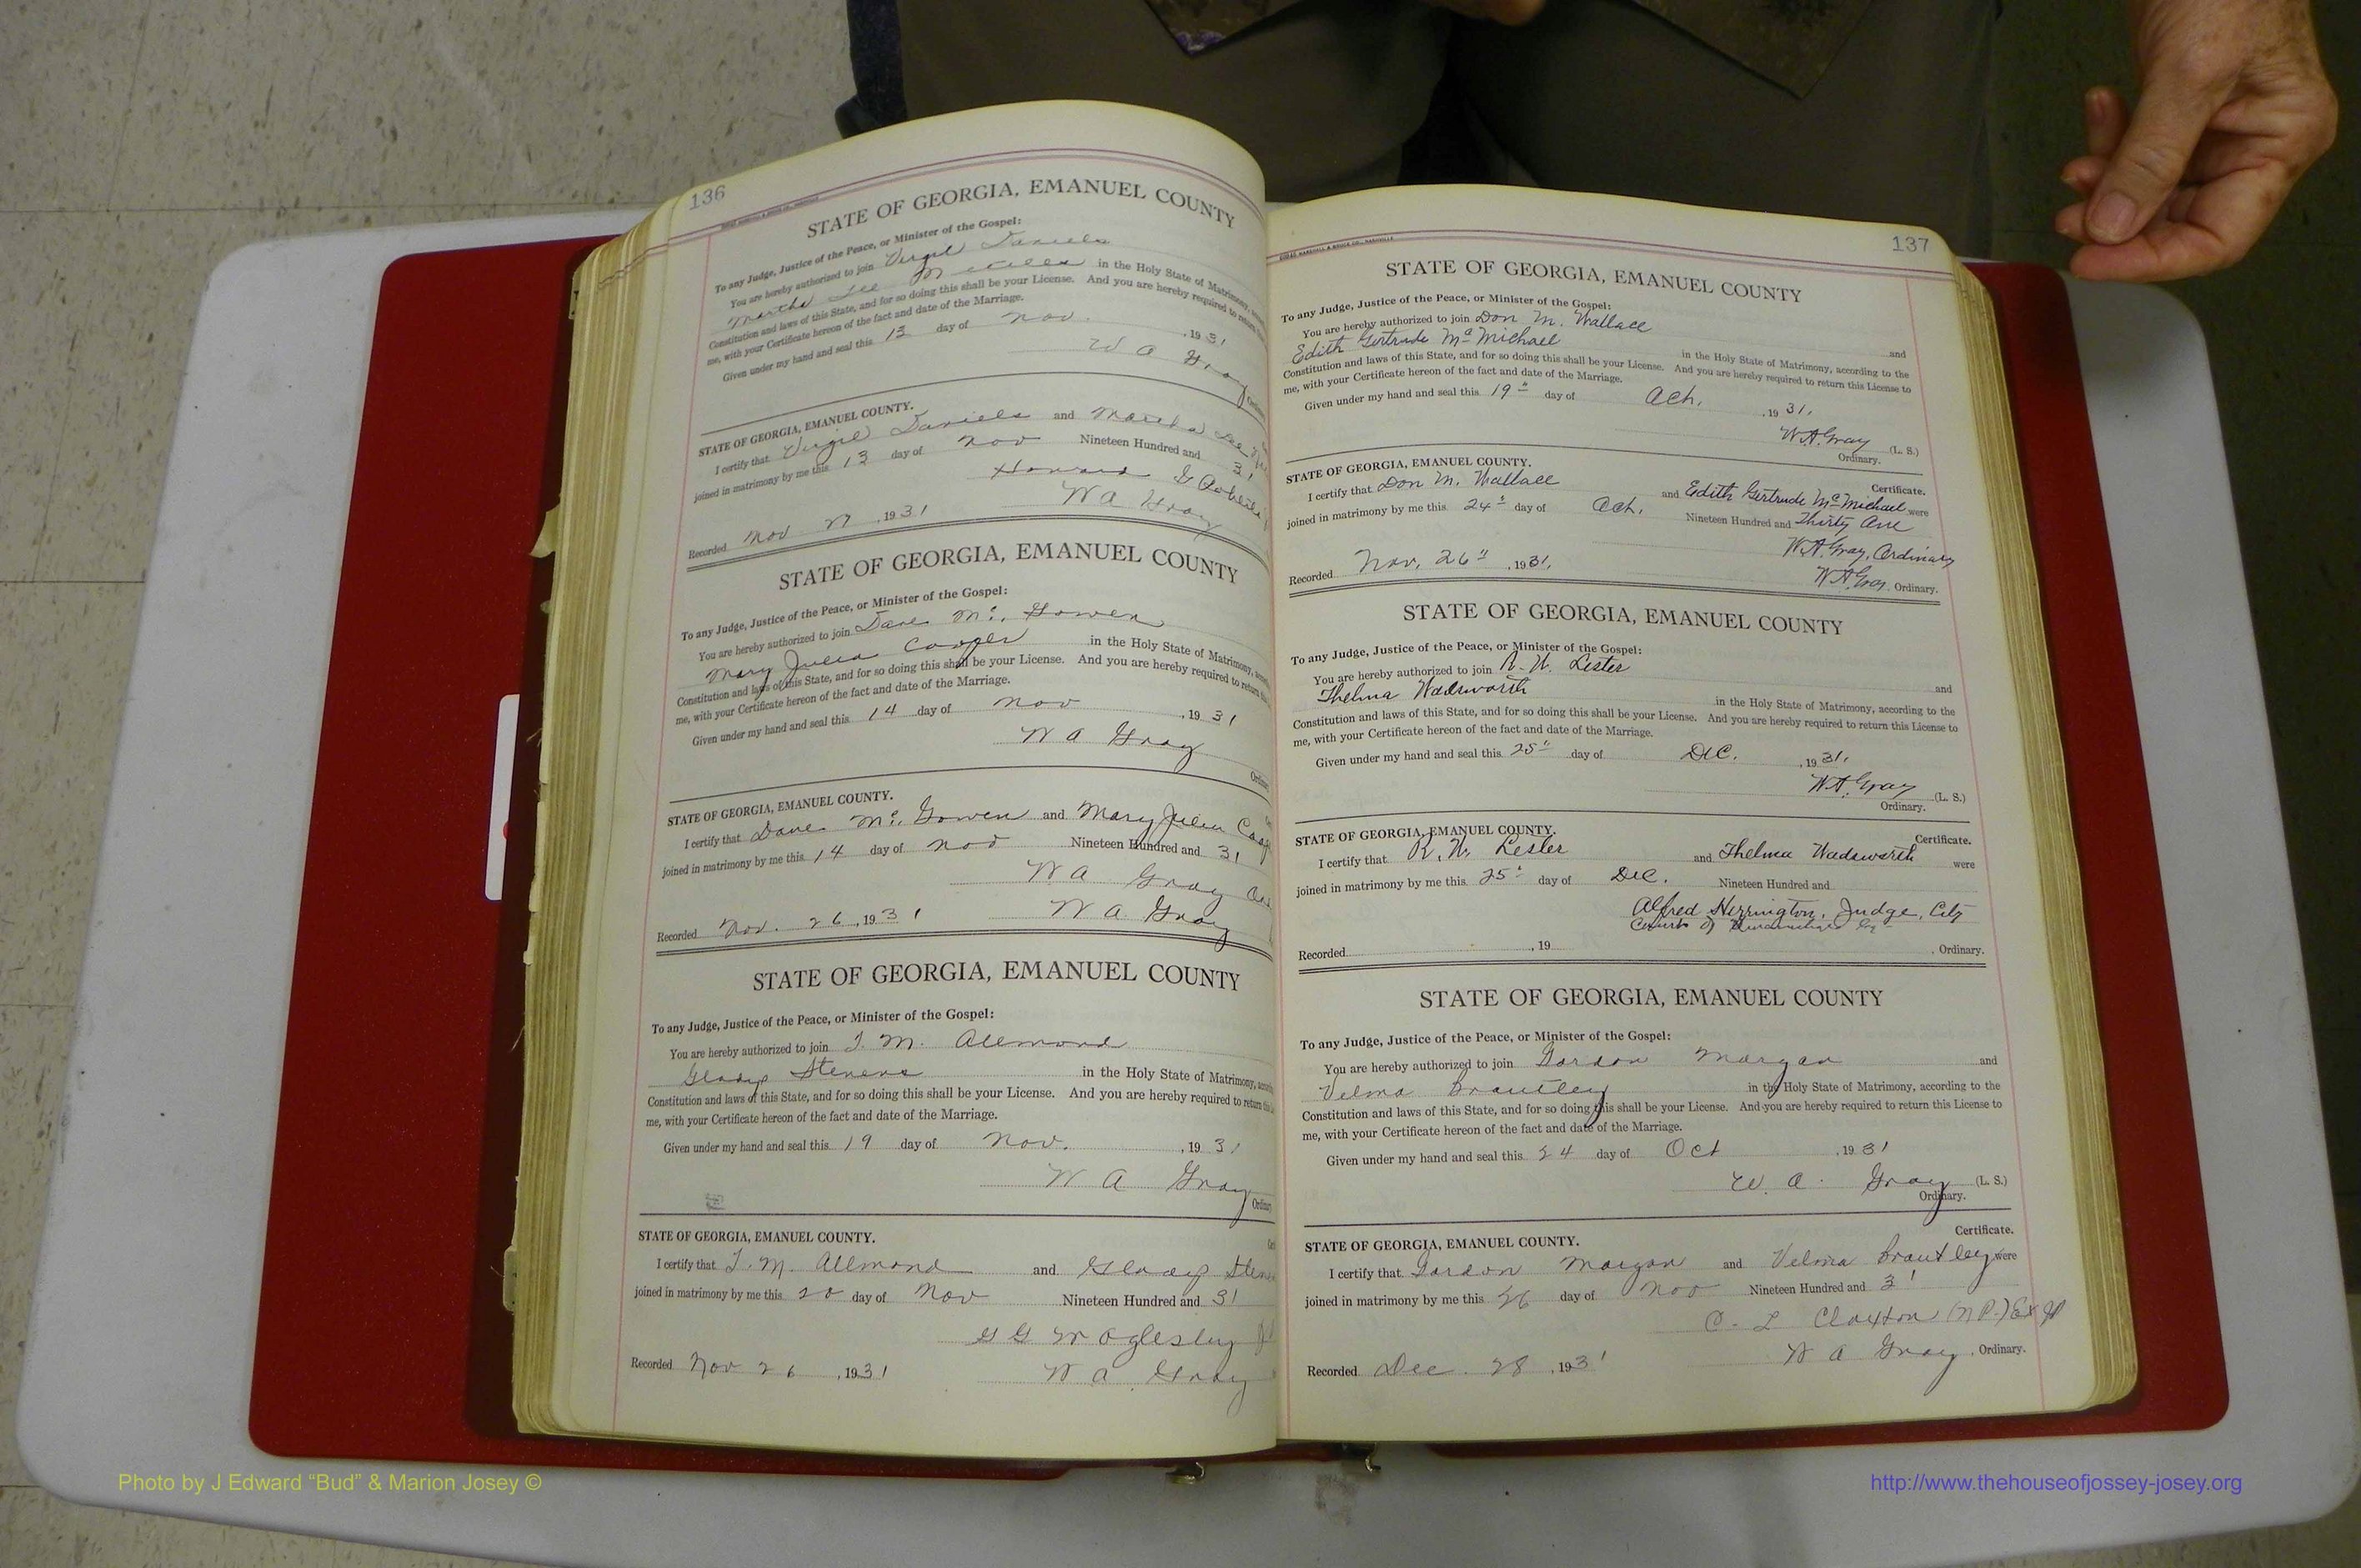 136
STATE OF GEORGIA, EMANUEL COUNTY
To any Judge, Justice of the Peace, or Minister of the Gospel:
You are hereby authorized to join Virgil Daniels
Martha Lee in the Holy State of Matrimony,
Constitution and laws of this State, and for so doing this shall be your License. And you are hereby required to return
me, with your Certificate hereon of the fact and date of the Marriage.
Given under my hand and seal this 13 day of Nov. , 1931
W A Gray
STATE OF GEORGIA, EMANUEL COUNTY.
I certify that Virgil Daniels and Martha Lee
joined in matrimony by me this 13 day of Nov Nineteen Hundred and 31
Howard
W A Gray
Recorded Nov 27 , 1931
STATE OF GEORGIA, EMANUEL COUNTY
To any Judge, Justice of the Peace, or Minister of the Gospel:
You are hereby authorized to join Dave Mc. Gowen
Mary Julia Cooper in the Holy State of Matrimony,
Constitution and laws of this State, and for so doing this shall be your License. And you are hereby required to return
me, with your Certificate hereon of the fact and date of the Marriage.
Given under my hand and seal this 14 day of Nov , 1931
W A Gray
STATE OF GEORGIA, EMANUEL COUNTY.
I certify that Dave Mc. Gowen and Mary Julia
joined in matrimony by me this 14 day of Nov Nineteen Hundred and 31
W A Gray
W A Gray
Recorded Nov. 26 , 1931
STATE OF GEORGIA, EMANUEL COUNTY
To any Judge, Justice of the Peace, or Minister of the Gospel:
You are hereby authorized to join J. M. Allmond
Gladys Stevens in the Holy State of Matrimony,
Constitution and laws of this State, and for so doing this shall be your License. And you are hereby required to return
me, with your Certificate hereon of the fact and date of the Marriage.
Given under my hand and seal this 19 day of Nov. , 1931
W A Gray
STATE OF GEORGIA, EMANUEL COUNTY.
I certify that J. M. Allmond and Gladys
joined in matrimony by me this 20 day of Nov Nineteen Hundred and 31
G G W Oglesby
Recorded Nov 26 , 1931 W A Gray
137
STATE OF GEORGIA, EMANUEL COUNTY
To any Judge, Justice of the Peace, or Minister of the Gospel:
You are hereby authorized to join Don M. Wallace and
Edith Gertrude McMichael in the Holy State of Matrimony, according to the
Constitution and laws of this State, and for so doing this shall be your License. And you are hereby required to return this License to
me, with your Certificate hereon of the fact and date of the Marriage.
Given under my hand and seal this 19" day of Oct. , 1931.
W.A. Gray (L. S.)
Ordinary.
STATE OF GEORGIA, EMANUEL COUNTY. Certificate.
I certify that Don M. Wallace and Edith Gertrude McMichael were
joined in matrimony by me this 24" day of Oct. Nineteen Hundred and Thirty One
W.A. Gray, Ordinary
Recorded Nov. 26" , 1931. W.A. Gray, Ordinary.
STATE OF GEORGIA, EMANUEL COUNTY
To any Judge, Justice of the Peace, or Minister of the Gospel:
You are hereby authorized to join R. W. Lester and
Thelma Wadsworth in the Holy State of Matrimony, according to the
Constitution and laws of this State, and for so doing this shall be your License. And you are hereby required to return this License to
me, with your Certificate hereon of the fact and date of the Marriage.
Given under my hand and seal this 25" day of Dec. , 1931.
W.A. Gray (L. S.)
Ordinary.
STATE OF GEORGIA, EMANUEL COUNTY. Certificate.
I certify that R. W. Lester and Thelma Wadsworth were
joined in matrimony by me this 25" day of Dec. Nineteen Hundred and
Alfred Herrington, Judge, City
Courts of
Recorded , 19 , Ordinary.
STATE OF GEORGIA, EMANUEL COUNTY
To any Judge, Justice of the Peace, or Minister of the Gospel:
You are hereby authorized to join Gordon Morgan and
Velma Brantley in the Holy State of Matrimony, according to the
Constitution and laws of this State, and for so doing this shall be your License. And you are hereby required to return this License to
me, with your Certificate hereon of the fact and date of the Marriage.
Given under my hand and seal this 24 day of Oct , 1931
W. A. Gray (L. S.)
Ordinary.
Certificate.
STATE OF GEORGIA, EMANUEL COUNTY.
I certify that Gordon Morgan and Velma Brantley were
joined in matrimony by me this 26 day of Nov Nineteen Hundred and 31
C. L Claxton (N.P.) Ex
Recorded Dec. 28 , 1931 W A Gray, Ordinary.
Photo by J Edward “Bud” & Marion Josey ©
http://www.thehouseofjossey-josey.org